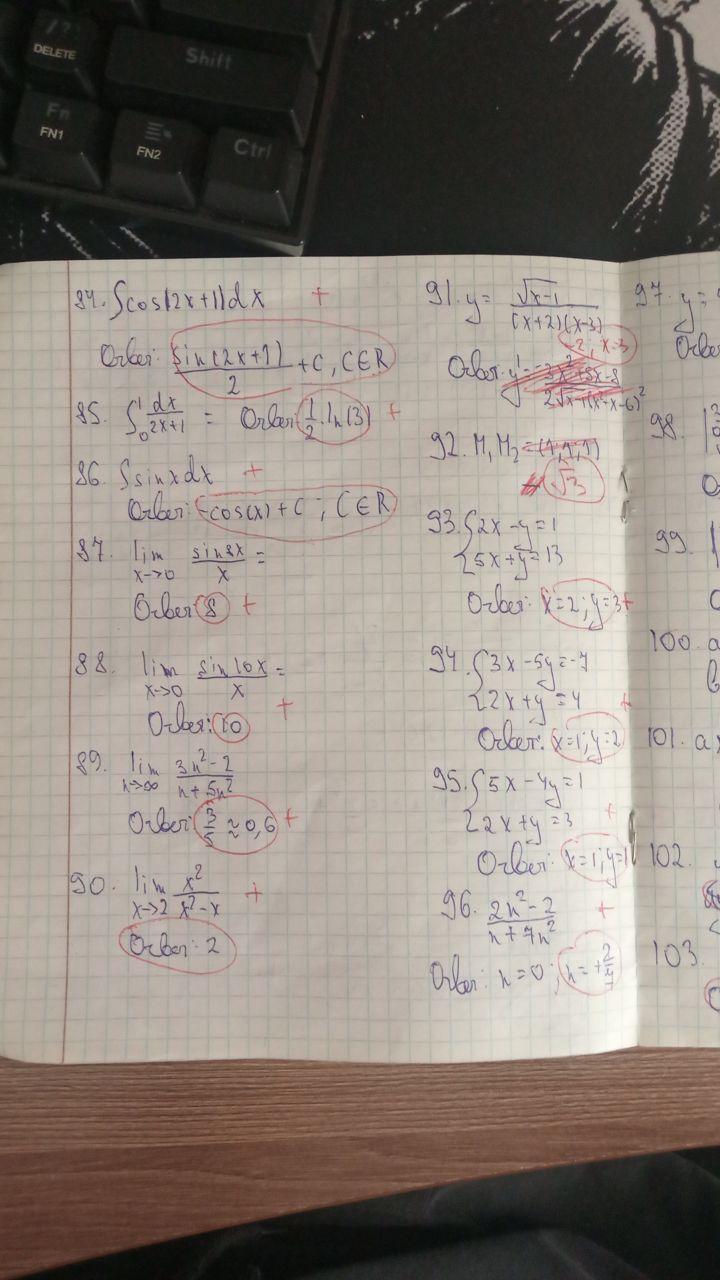 / ?
DELETE
Shift
Fn
FN1
FN2
Ctrl
84. ∫cos(2x+1)dx +
Ответ: sin(2x+1)/2 + C, C∈R
85. ∫₀¹ dx/(2x+1) = Ответ: 1/2 · ln(3) +
86. ∫sinxdx +
Ответ: -cos(x) + C ; C∈R
87. lim x→0 sin8x/x =
Ответ: 8 +
88. lim x→0 sin10x/x =
Ответ: 10 +
89. lim n→∞ (3n²-2)/(n+5n²)
Ответ: 3/5 ≈ 0,6 +
90. lim x→2 x²/(x²-x) +
Ответ: 2
91. y = √(x-1)/((x+2)(x-3))
-2; x-3
Ответ: y' = (-3x²+5x-8)/(2√(x-1)(x²-x-6)²)
92. M₁M₂ = (1,1,1)
√3
93. {2x-y=1
{5x+y=13
Ответ: x=2; y=3 +
94. {3x-5y=-7
{2x+y=4 +
Ответ: x=1; y=2
95. {5x-4y=1
{2x+y=3 +
Ответ: x=1; y=1
96. (2n²-2)/(n+7n²) +
Ответ: n=0; n=+2/7
97. y=
98.
99.
100. a
101. a
102.
103.